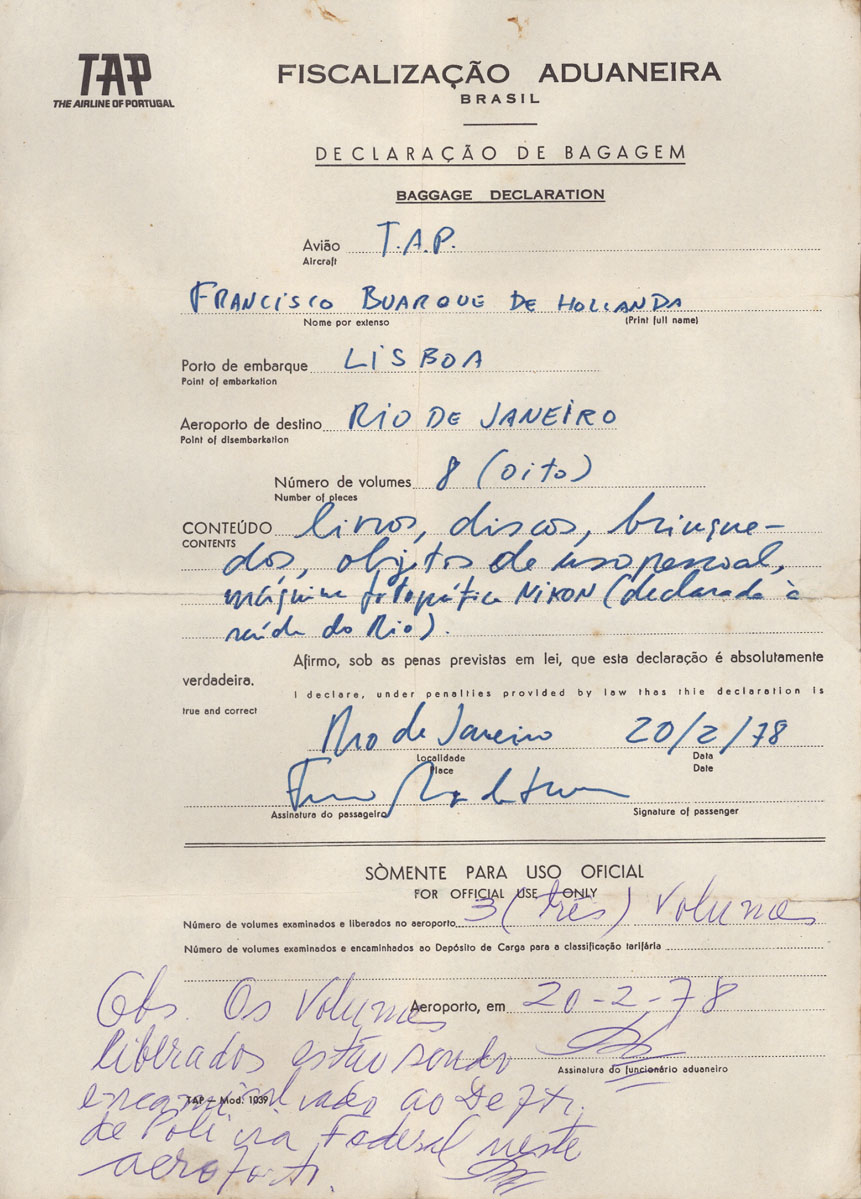 TAP
THE AIRLINE OF PORTUGAL
FISCALIZAÇÃO ADUANEIRA
BRASIL
DECLARAÇÃO DE BAGAGEM
BAGGAGE DECLARATION
Avião T.A.P.
Aircraft
FRANCISCO BUARQUE DE HOLLANDA
Nome por extenso (Print full name)
Porto de embarque LISBOA
Point of embarkation
Aeroporto de destino RIO DE JANEIRO
Point of disembarkation
Número de volumes 8 (oito)
Number of pieces
CONTEÚDO livros, discos, brinque-
CONTENTS
dos, objetos de uso pessoal,
máquina fotográfica NIKON (declarada à
saída do Rio).
Afirmo, sob as penas previstas em lei, que esta declaração é absolutamente
verdadeira.
I declare, under penalties provided by law thas thie declaration is
true and correct
Rio de Janeiro 20/2/78
Localidade Data
Place Date
Assinatura do passageiro Signature of passenger
SÒMENTE PARA USO OFICIAL
FOR OFFICIAL USE ONLY
Número de volumes examinados e liberados no aeroporto 3 (três) Volumes
Número de volumes examinados e encaminhados ao Depósito de Carga para a classificação tarifária
Aeroporto, em 20-2-78
Assinatura do funcionário aduaneiro
Obs. Os Volumes
liberados estão sendo
encaminhado ao Depto.
TAP — Mod. 1039
de Polícia Federal neste
aeroporto.